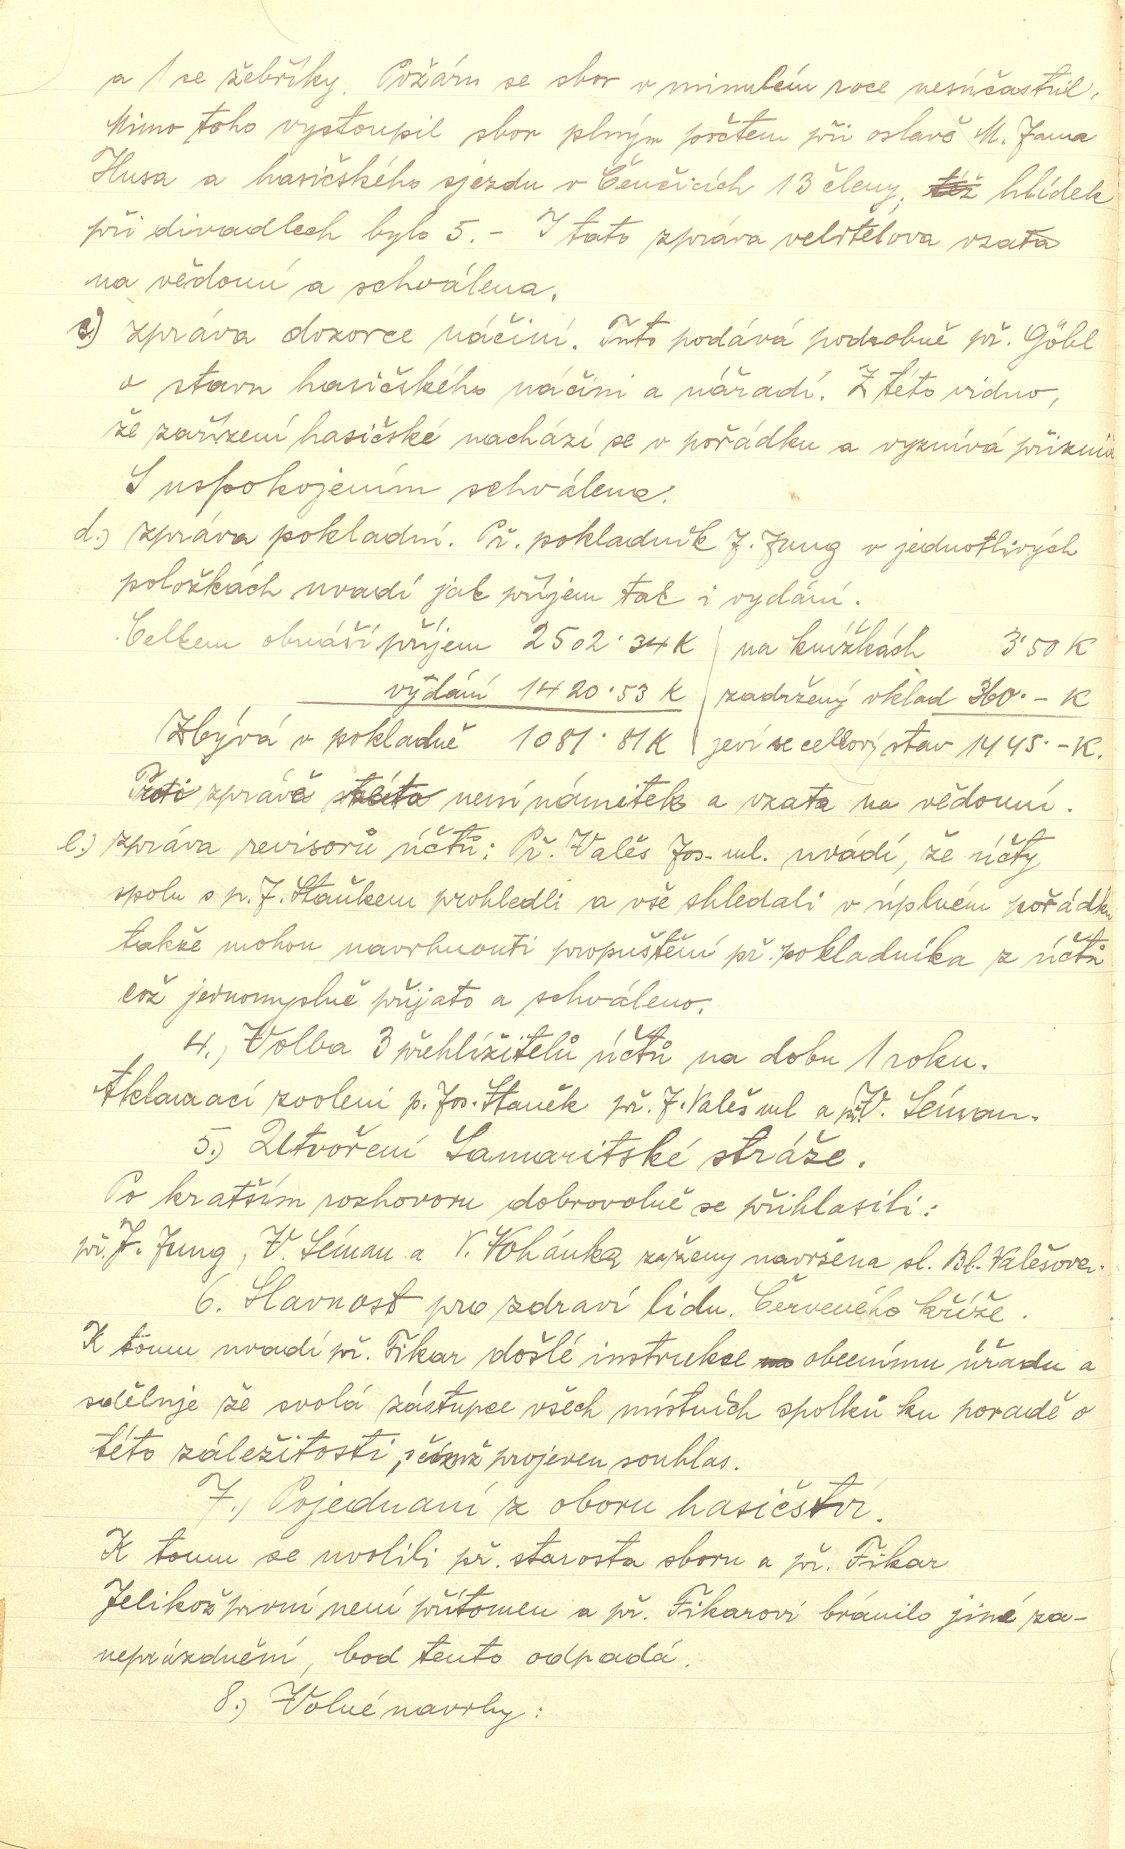 a 1 se žebříky. Požáru se sbor v minulém roce nesúčastnil.
Mimo toho vystoupil sbor plným počtem při oslavě M. Jana
Husa a hasičského sjezdu v Čenčicích 13 členy, též hlídek
při divadlech bylo 5. – I tato zpráva velitelova vzata
na vědomí a schválena.
c) zpráva dozorce náčiní. Tuto podává podrobně př. Göbl
o stavu hasičského náčiní a nářadí. Z této vidno,
že zařízení hasičské nachází se v pořádku a vyznívá příznivě
S uspokojením schválena.
d.) zpráva pokladní. Př. pokladník J. Jung v jednotlivých
položkách uvadí jak příjem tak i vydání.
Celkem obnáší příjem 2502·34 K | na knížkách 3·50 K
vydání 1420·53 K | zadržený vklad 360·– K
Zbývá v pokladně 1081·81 K | jeví se celkový stav 1445·– K.
Proti zprávě není námitek a vzata na vědomí.
e.) zpráva revisorů účtů: Př. Valeš Jos. ml. uvádí, že účty
spolu s p. J. Staňkem prohledli a vše shledali v úplném pořádku
takže mohou navrhnouti propuštění př. pokladníka z účtů
což jednomyslně přijato a schváleno.
4.) Volba 3 přehlížitelů účtů na dobu 1 roku.
Aklamací zvoleni p. Jos. Staněk př. J. Valeš ml a př. V. Léman.
5.) Utvoření Samaritské stráže.
Po kratším rozhovoru dobrovolně se přihlasili:
př. J. Jung, V. Léman a V. Vohánka za ženy navržena sl. Bl. Valešova.
6. Slavnost pro zdraví lidu. Červeného kříže.
K tomu uvadí př. Fikar došlé instrukce obecnímu úřadu a
sděluje že svolá zástupce všech místních spolků ku poradě o
této záležitosti, s čímž projeven souhlas.
7.) Pojednaní z oboru hasičství.
K tomu se uvolili př. starosta sboru a př. Fikar
Jelikož první není přítomen a př. Fikarovi bránilo jiné za-
neprázdnění, bod tento odpadá.
8.) Volné navrhy: